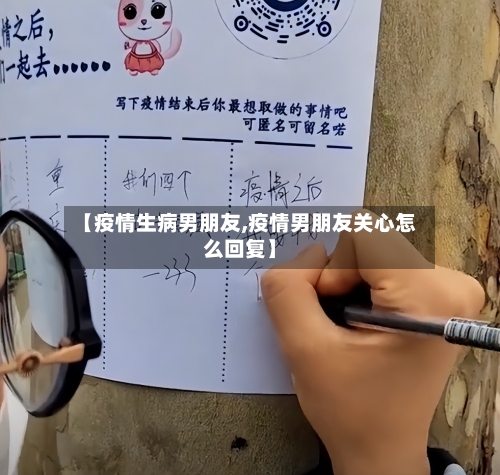 情之后，
们一起去……
写下疫情结束后你最想取做的事情吧
可匿名可留名喏
我们四个
疫情之后
【疫情生病男朋友,疫情男朋友关心怎
么回复】